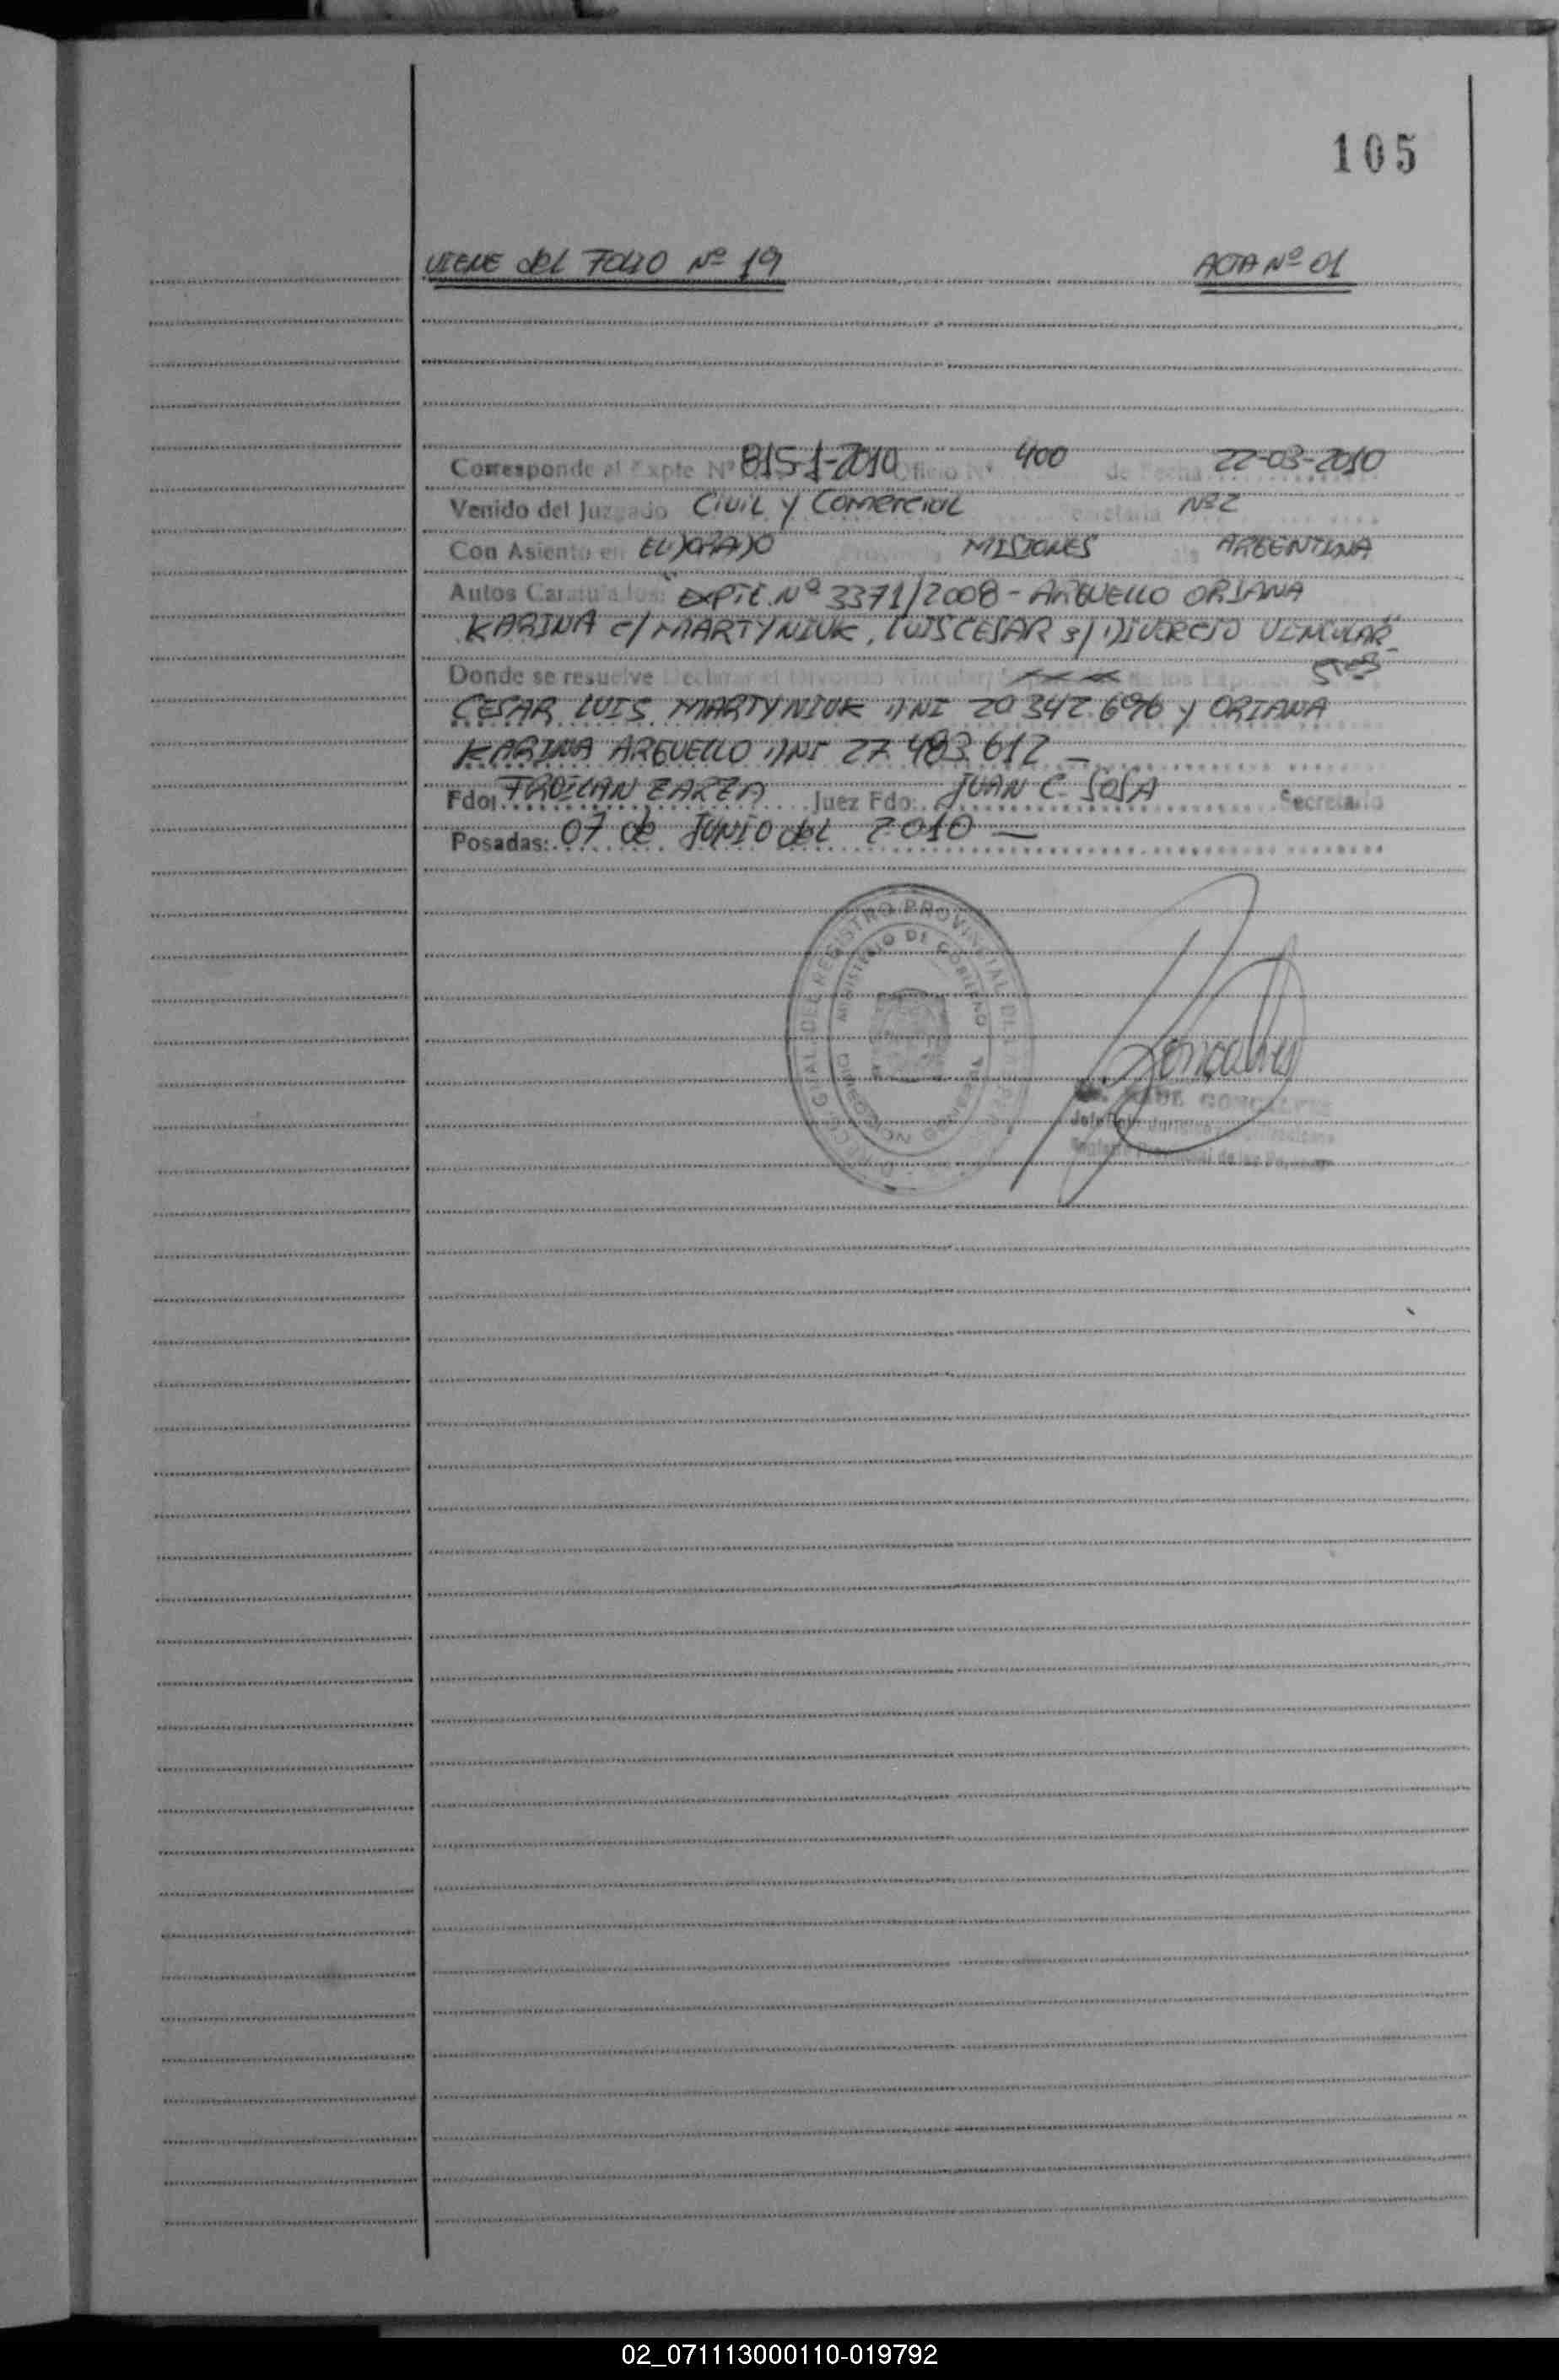 105
VIENE del FOLIO Nº 19 ACTA Nº 01
Corresponde al Expte Nº 8151-2010 Oficio Nº 400 de Fecha 22-03-2010
Venido del Juzgado Civil y Comercial Secretaria Nº 2
Con Asiento en ELDORADO Provincia MISIONES ARGENTINA
Autos Caratulados: "EXPTE. Nº 3371/2008 - ARGUELLO ORIANA
KARINA c/ MARTYNIUK, LUIS CESAR s/ DIVORCIO VINCULAR"
Donde se resuelve Declarar el Divorcio Vincular de los Esposos
CESAR LUIS MARTYNIUK DNI 20.342.696 y ORIANA
KARINA ARGUELLO DNI 27.483.612 —
Fdo: FROILAN ZARZA Juez Fdo: JUAN C. SOSA Secretario
Posadas: 07 de JUNIO del 2010 —
REGISTRO PROVINCIAL DE LAS
MINISTERIO DE GOBIERNO
RAUL GONCALVES
Registro Provincial de las Personas
02_071113000110-019792